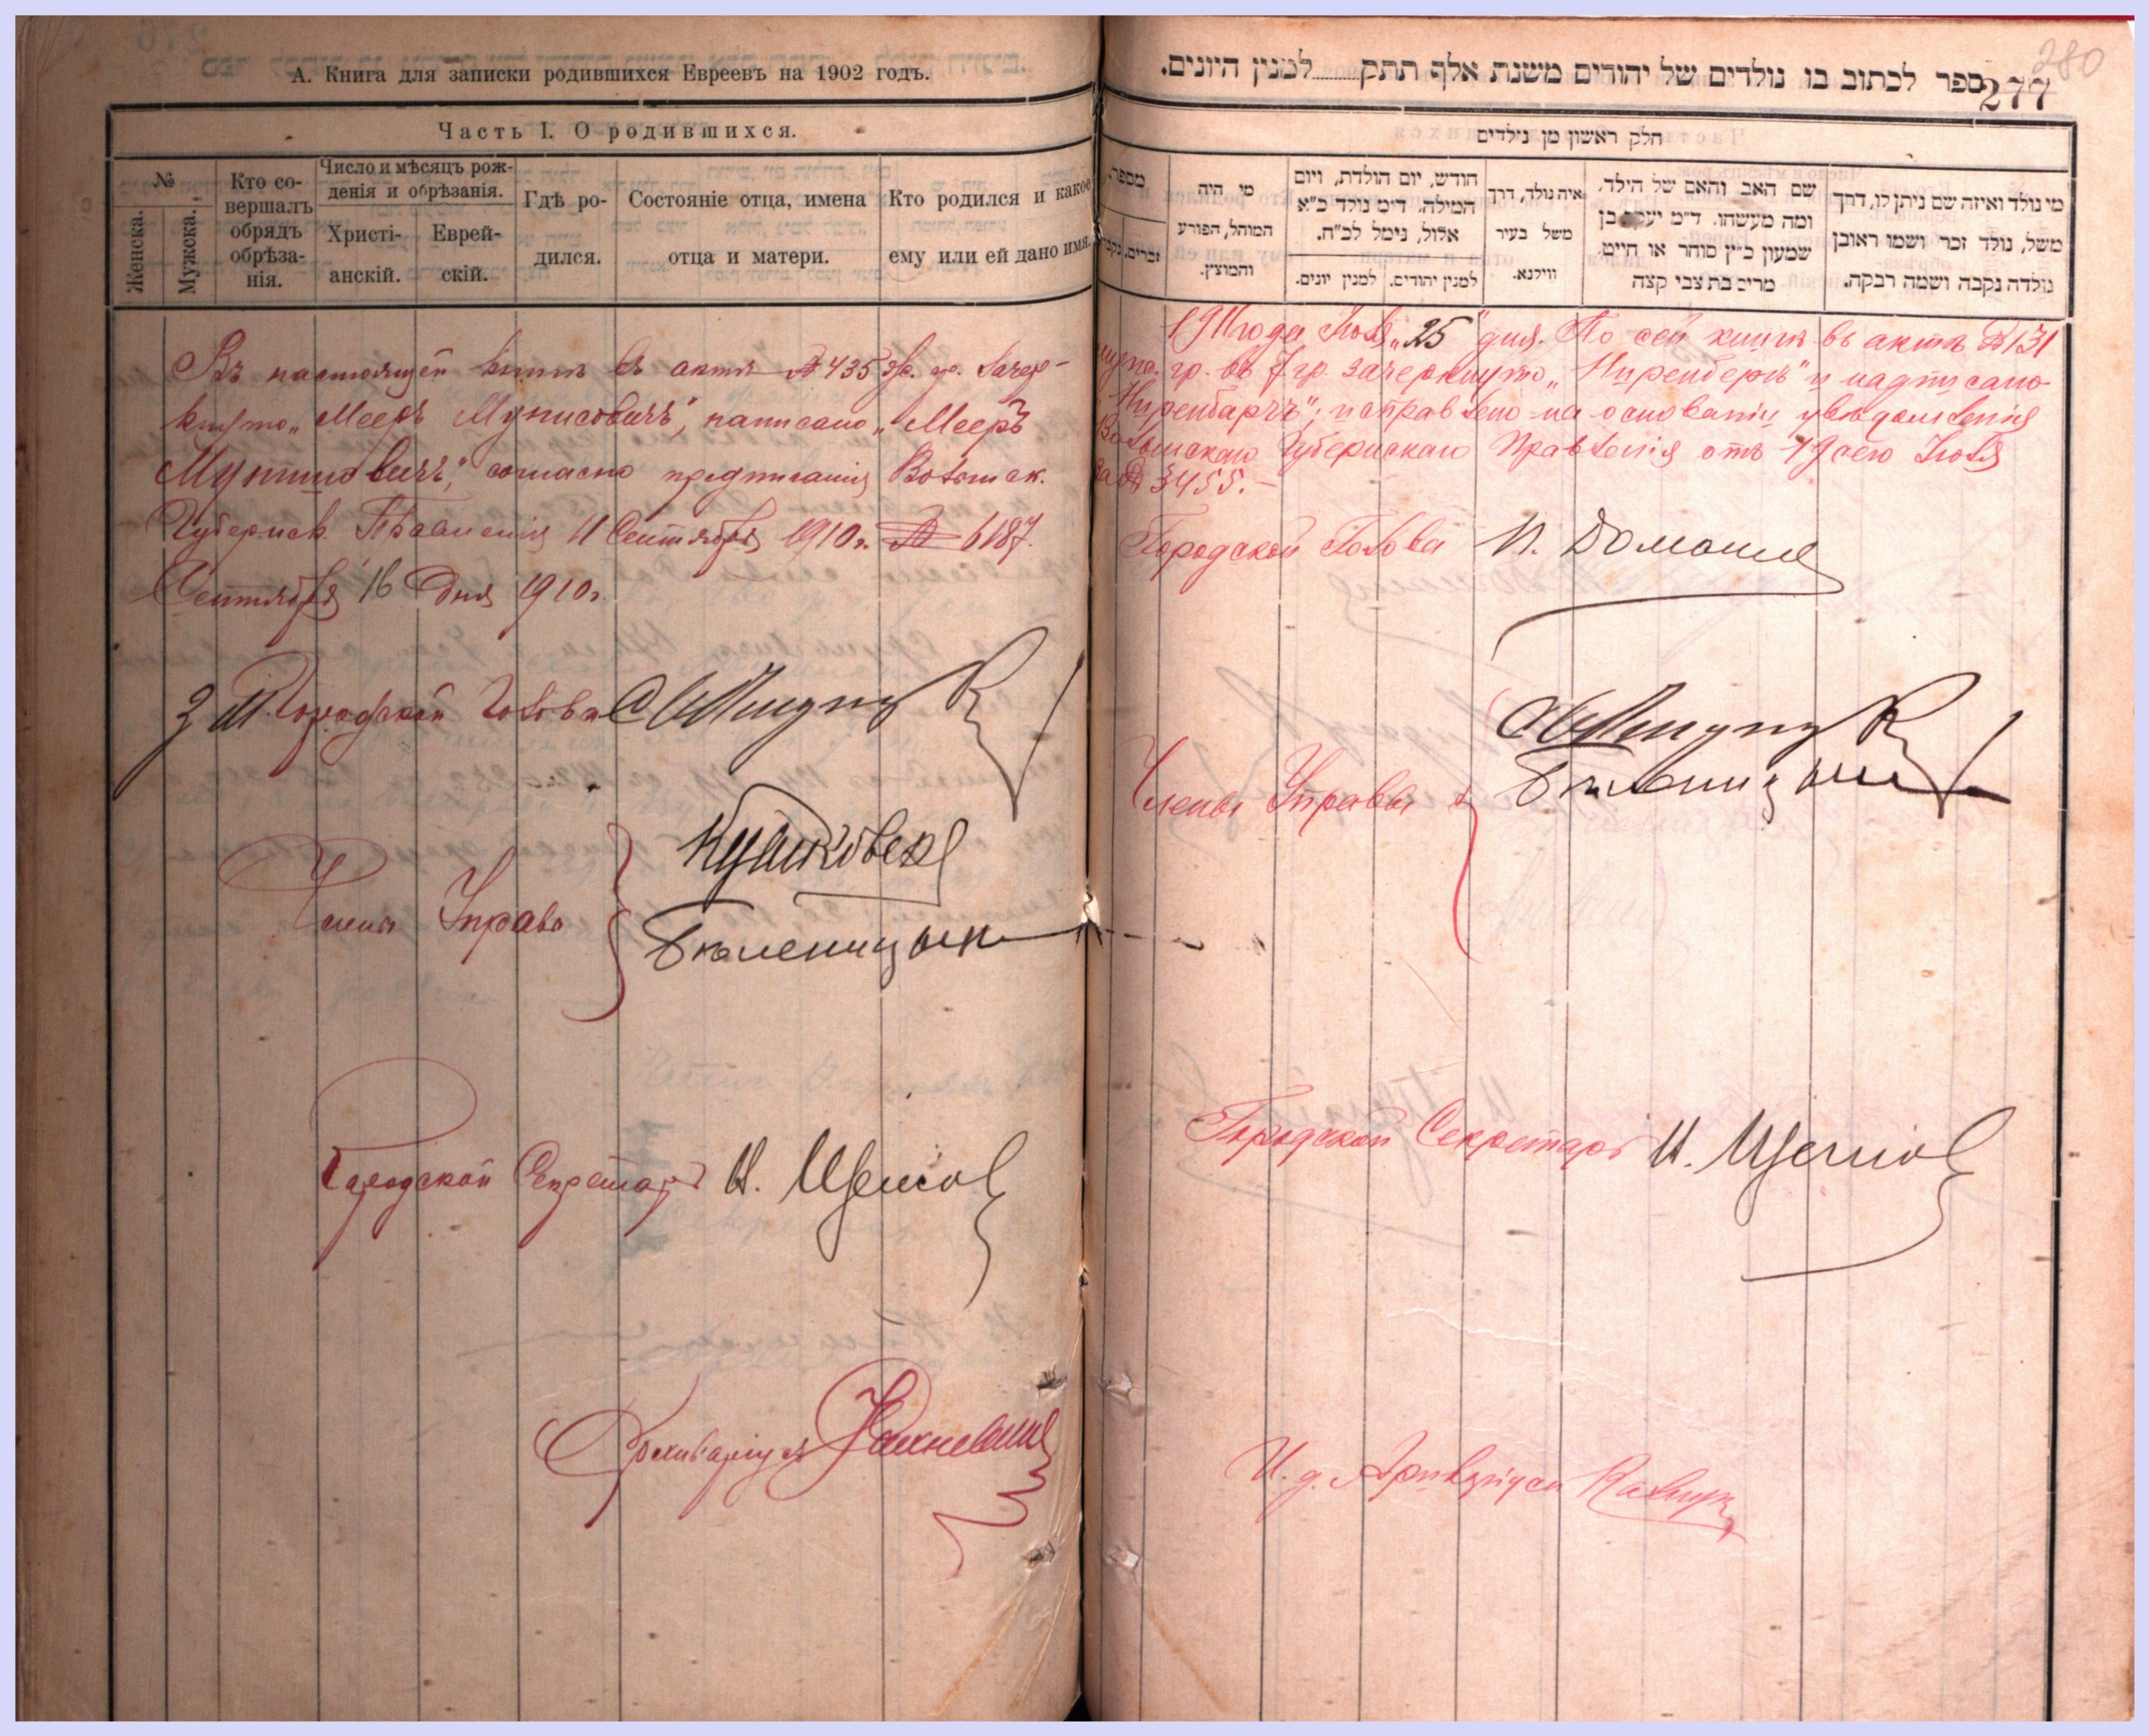 А. Книга для записки родившихся Евреевъ на 1902 годъ.
Часть I. О родившихся.
№
Женска.
Мужска.
Кто со-
вершалъ
обрядъ
обрѣза-
нія.
Число и мѣсяцъ рож-
денія и обрѣзанія.
Христі-
анскій.
Еврей-
скій.
Гдѣ ро-
дился.
Состояніе отца, имена
отца и матери.
Кто родился и какое
ему или ей дано имя.
Въ настоящей книгѣ въ актѣ № 435 зачер-
кнуто „Мееръ Мунисовичъ", написано „Мееръ
Мунишовичъ", согласно предписанія Волынск.
Губернск. Правленія 11 Сентября 1910 г. № 6187.
Сентября 16 дня 1910 г.
Городской Голова
Члены Управы
Бѣленицкій
Городской Секретарь И.
Архиваріусъ
280
277
ספר לכתוב בו נולדים של יהודים משנת אלף תתק למנין היונים.
חלק ראשון מן נולדים
מספר
זכרים. נקב
מי היה
המוהל, הפורע
והמוצץ.
חודש, יום הולדת, ויום
המילה. ד״מ נולד כ״א
אלול, נימל לכ״ח.
למנין יהודים.
למנין יונים.
איה נולד, דרך
משל בעיר
ווילנא.
שם האב והאם של הילד,
ומה מעשהו. ד״מ יעקב בן
שמעון כ״ץ סוחר או חייט.
מרים בת צבי קצה
מי נולד ואיזה שם ניתן לו, דרך
משל, נולד זכר ושמו ראובן
נולדה נקבה ושמה רבקה.
1911 года Іюля „25" дня. По сей книгѣ въ актѣ № 131
гр. въ 7 гр. зачеркнуто „Ниренбергъ" и надписано
„Ниренбарчъ"; исправлено на основаніи увѣдомленія
Волынскаго Губернскаго Правленія отъ 19 сего Іюля
за № 3455.-
Городской Голова И. Домания
Члены Управы
Бѣленицкій
Городской Секретарь И.
И. д. Архиваріуса